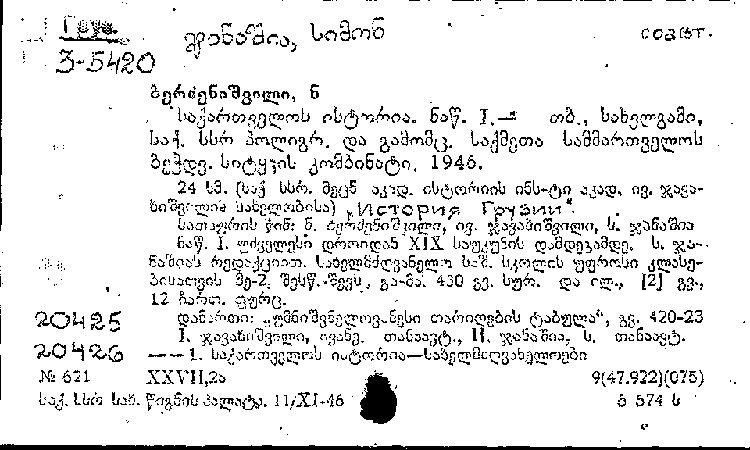 Груз.
ჯანაშია, სიმონ
СОВМЕСТ.
3-5420
ბერძენიშვილი, ნ
საქართველოს ისტორია. ნაწ. I.— თბ., სახელგამი,
საქ. სსრ პოლიგრ. და გამომც. საქმეთა სამმართველოს
ბეჭდვ. სიტყვის კომბინატი, 1946.
24 სმ. (საქ სსრ. მეცნ აკად. ისტორიის ინს-ტი აკად. ივ. ჯავა-
ხიშვილის სახელობისა) „История Грузии“.
სათაურის წინ: ნ. ბერძენიშვილი, ივ. ჯავახიშვილი, ს. ჯანაშია
ნაწ. I. უძველესი დროიდან XIX საუკუნის დამდეგამდე. ს. ჯა-
ნაშიას რედაქციით. სახელმძღვანელო საშ. სკოლის უფროსი კლასე-
ბისათვის მე-2. შესწ. შევს. გა-მა. 430 გვ. სურ. და ილ., [2] გვ.,
12 ჩართ. ფურც.
დანართი: „უმნიშვნელოვანესი თარიღების ტაბულა“, გვ. 420-23
I. ჯავახიშვილი, ივანე. თანაავტ., II. ჯანაშია, ს. თანაავტ.
— — 1. საქართველოს ისტორია—სახელმძღვანელოები
20425
20426
№ 621 XXVII,2ა 9(47.922)(075)
საქ. სსრ სახ. წიგნის პალატა. 11/XI-46 ბ 574 ს